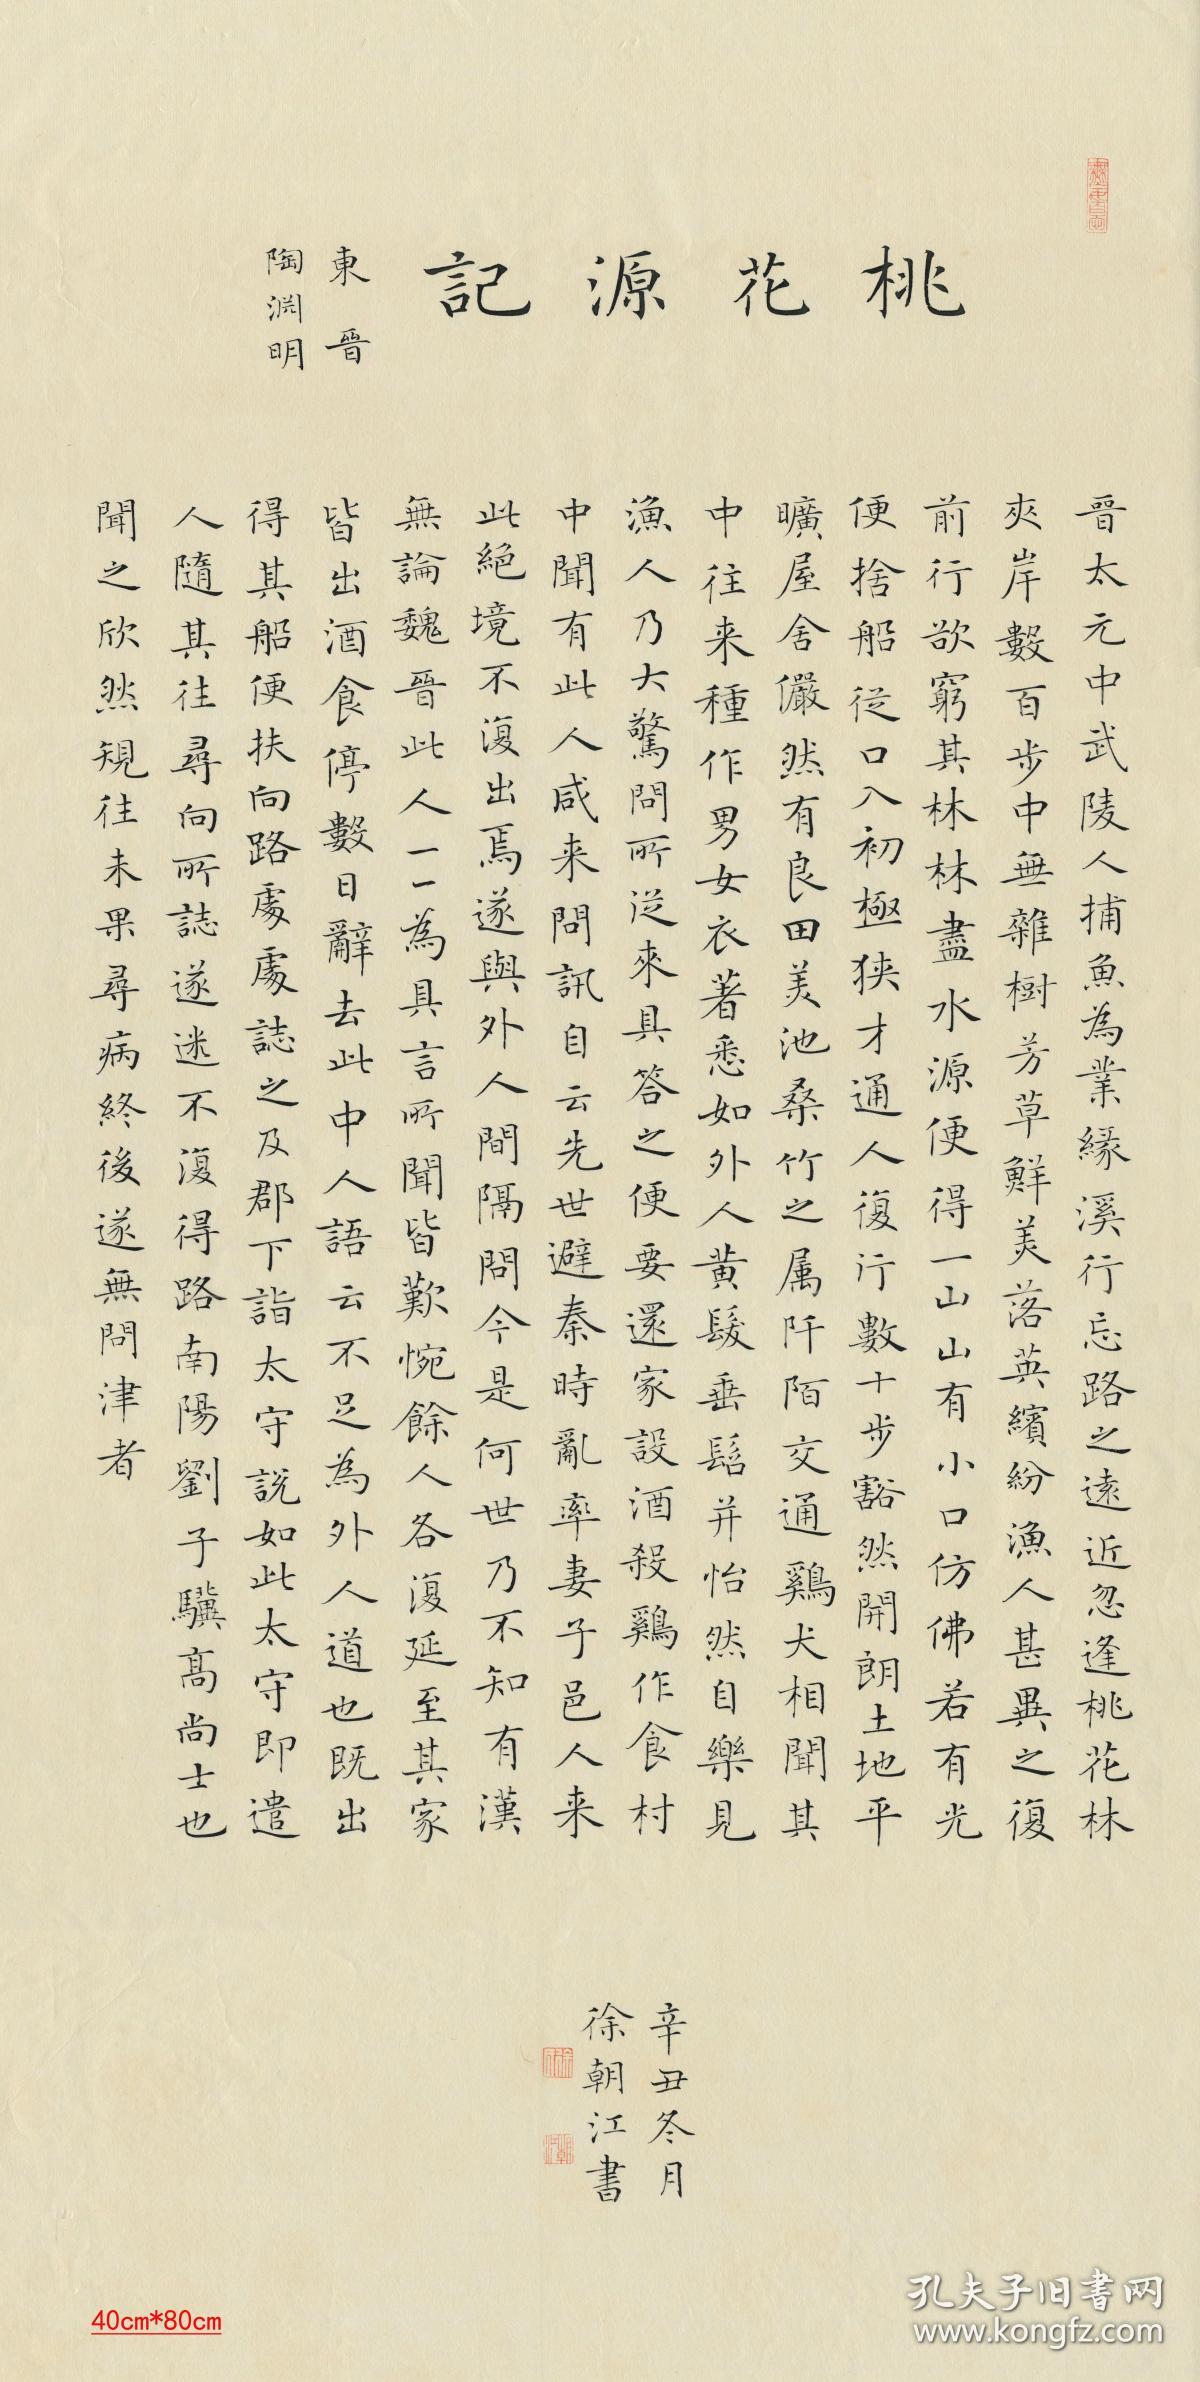 桃花源記
東晉
陶淵明
晉太元中武陵人捕魚為業緣溪行忘路之遠近忽逢桃花林
夾岸數百步中無雜樹芳草鮮美落英繽紛漁人甚異之復
前行欲窮其林林盡水源便得一山山有小口仿佛若有光
便捨船從口入初極狹才通人復行數十步豁然開朗土地平
曠屋舍儼然有良田美池桑竹之属阡陌交通鷄犬相聞其
中往来種作男女衣著悉如外人黄髮垂髫并怡然自樂見
漁人乃大驚問所從來具答之便要還家設酒殺鷄作食村
中聞有此人咸来問訊自云先世避秦時亂率妻子邑人来
此絕境不復出焉遂與外人間隔問今是何世乃不知有漢
無論魏晉此人一一為具言所聞皆歎惋餘人各復延至其家
皆出酒食停數日辭去此中人語云不足為外人道也既出
得其船便扶向路處處誌之及郡下詣太守說如此太守即遣
人隨其往尋向所誌遂迷不復得路南陽劉子驥高尚士也
聞之欣然規往未果尋病終後遂無問津者
辛丑冬月
徐朝江書
40cm*80cm
孔夫子旧書网
www.kongfz.com